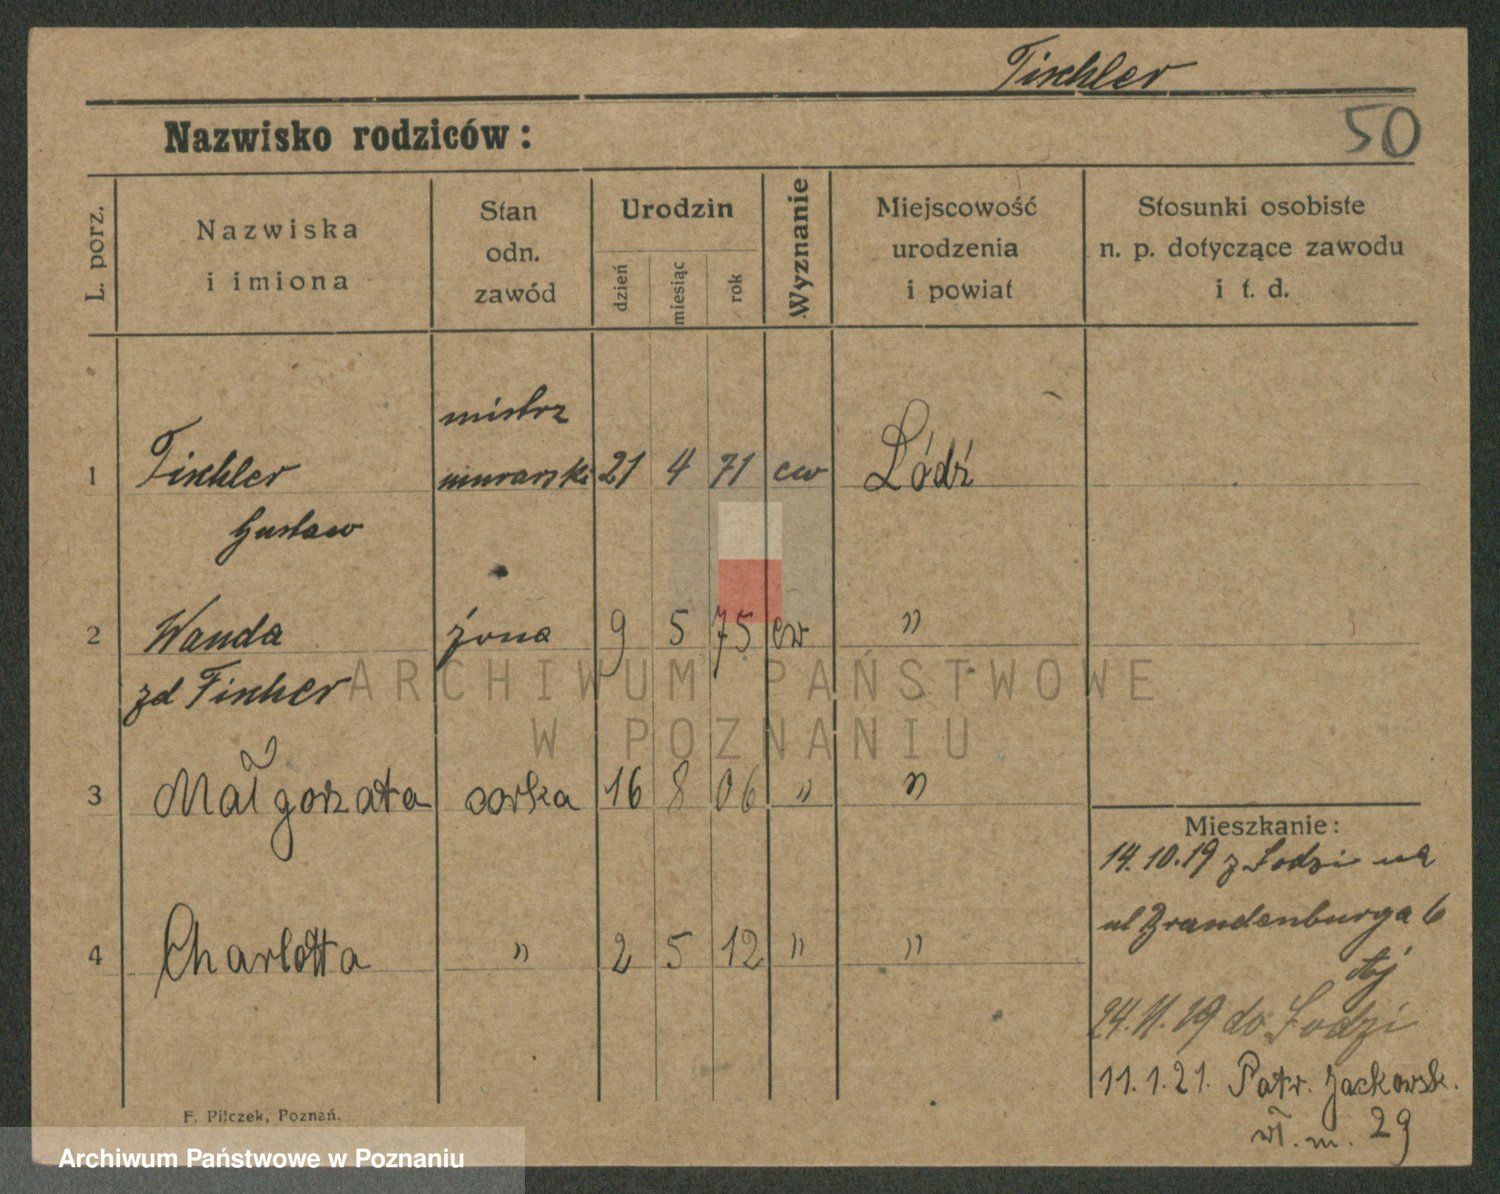 Tischler
Nazwisko rodziców:
50
L. porz.
Nazwiska
i imiona
Stan
odn.
zawód
Urodzin
dzień
miesiąc
rok
Wyznanie
Miejscowość
urodzenia
i powiat
Stosunki osobiste
n. p. dotyczące zawodu
i t. d.
mistrz
1 Tischler murarski 21 4 71 ew Łódź
Gustaw
2 Wanda żona 9 5 75 ew "
zd Fischer
3 Małgorzata córka 16 8 06 " "
4 Charlotta " 2 5 12 " "
Mieszkanie:
14.10.19 z Łodzi na
ul Brandenburga 6
24.11.19 do Łodzi
11.1.21. Patr. Jackowsk.
wł. m. 29
F. Pilczek, Poznań.
ARCHIWUM PAŃSTWOWE
W POZNANIU
Archiwum Państwowe w Poznaniu